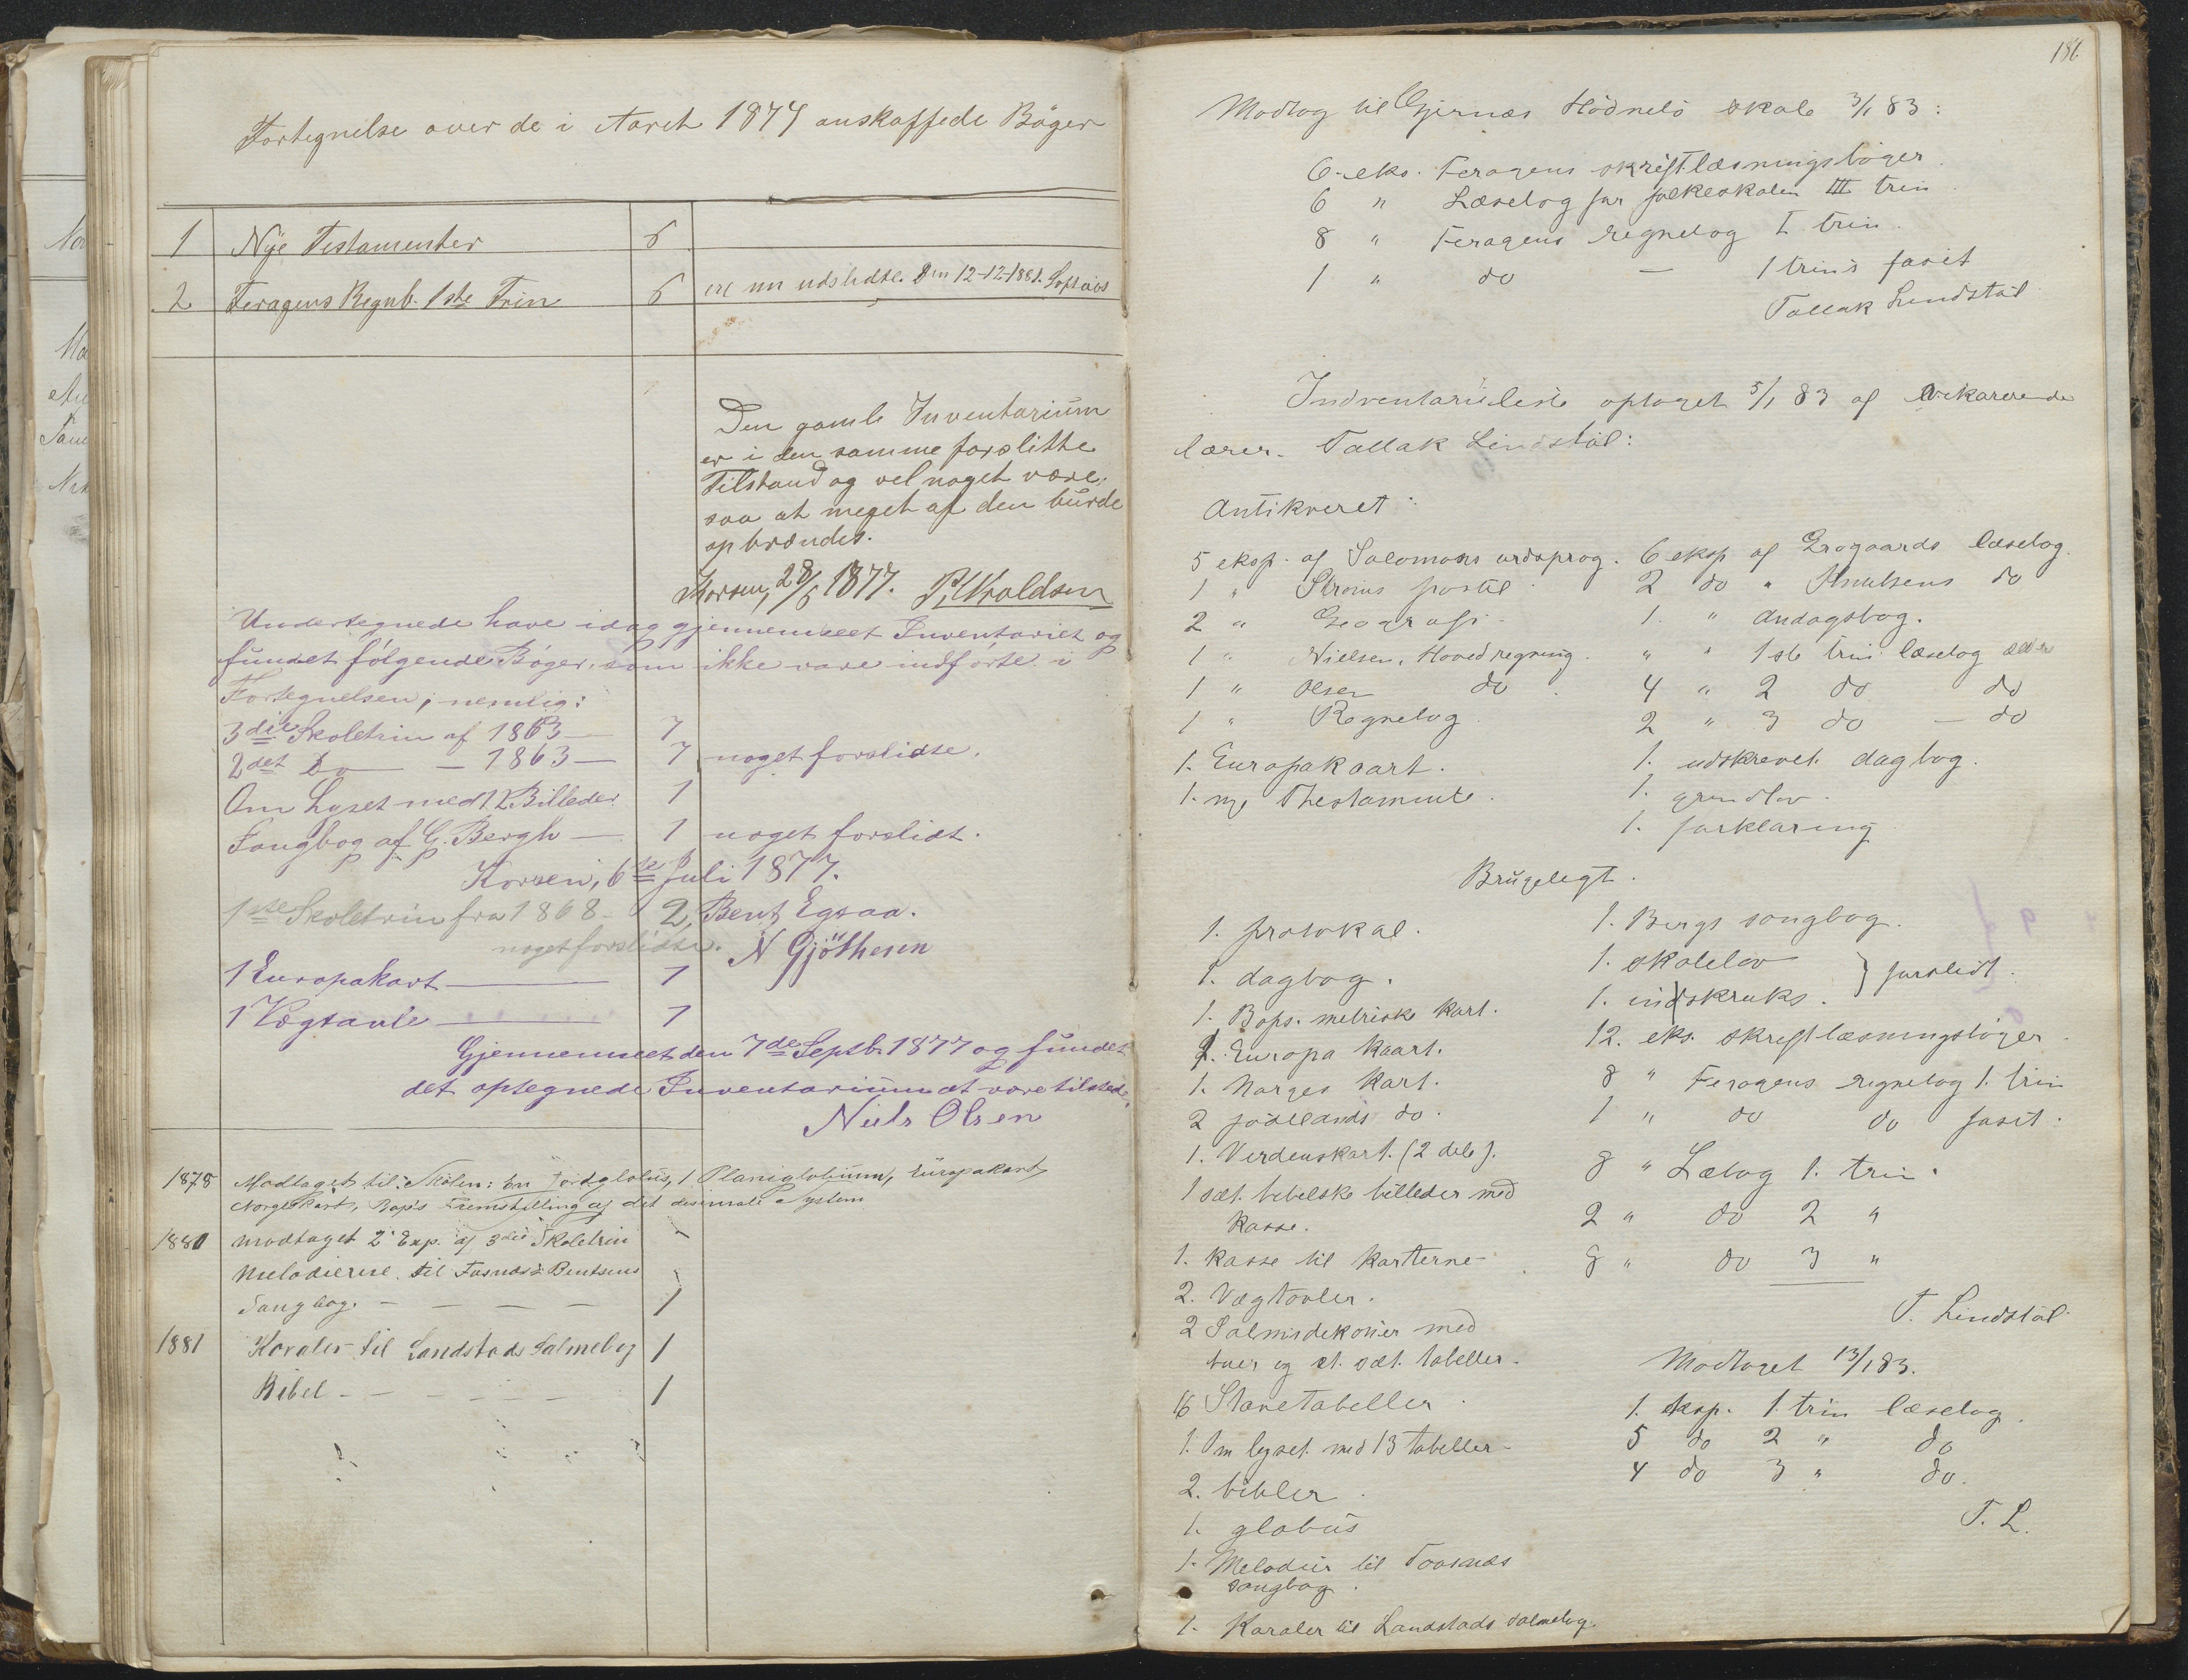 Fortegnilse over de i Aaret 1874 anskaffede Böger
1 Nye Testamenter 6
2 Feragens Regnb. 1ste Trin 6 ere nu udslidte. Den 12-12-1881.
Den gamle Inventarium
er i den samme forslitte
Tilstand og vel noget være,
saa at meget af den burde
opbrændes.
Korsen, 28/6 1877.
Undertegnede have idag gjennemseet Inventariet og
fundet følgende Bøger, som ikke vare indførte i
Fortegnelsen, nemlig:
3die Skoletrin af 1863 — 7
2det Do — 1863 — 7 noget forslidte.
Om Lyset med 12 Billeder 1
Sangbog af G. Bergh — 1 noget forslidt.
Korsen, 6te Juli 1877.
1ste Skoletrin fra 1868 - 2, Bent Egsaa.
noget forslidte. N Gjöthesen
1 Europakart — 1
1 Vægtavle — 1
Gjennemseet den 7de Septb. 1877 og fundet
det optegnede Inventarium at være tilstede.
Niels Olsen
1878 Modtaget til Skolen: En Jordglobus, 1 Planiglobium, Europakart,
Norgeskart, Bap's Fremstilling af det desimale System
1880 modtaget 2 Exp. af 3die Skoletrin
Melodierne til Fasnæs & Bentsens
Sangbog. — — — — 1
1881 Koraler til Landstads Salmebog 1
Bibel - — — — — 1
186
Modtog til Gjernæs Hödnebö skole 3/1 83:
6 eks. Feragens skriftlæsningsböger.
6 " Læsebog for folkeskolen III trin
8 " Feragens regnebog I trin.
1 " do — 1 trins fasit
Tallak Lindstöl
Indventarieliste optaget 5/1 83 af vikarerende
lærer. Tallak Lindstöl:
Antikveret:
5 eksp. af Salomons ordsprog. 6 eksp af Grøgaards læsebog.
1 " postil 2 do " Knudsens do
2 " Geografi - 1. " Andagsbog.
1 " Nielsen, Hovedregning. " " 1ste trin læsebog ældre
1 " Olsen do. 4 " 2 do do
1 " Regnebog 2 " 3 do — do
1. Europakaart. 1. udskrevet dagbog.
1. nye Thestamente. 1. grundlov.
1. forklaring
Brugelegt.
1. protokal. 1. Bergs sangbog.
1. dagbog. 1. skolelov } forslidt.
1. Bops. metriske kart. 1. indskruks.
1. Europa kaart. 12. eks. skriftlæsningsböger.
1. Norges kart. 8 " Feragens regnebog 1. trin
2 jödelands do. 1 " do do fasit.
1. Verdenskart. (2 dele). 8 " Læbog 1. trin.
1 sæt. bibelske billeder med 2 " do 2 "
kasse.
1. kasse til karterne - 8 " do 3 "
2. Vægtavler. T. Lindstöl
2 Salmodekoner med
buer og et. sæt. tabeller. Modtaget 13/1 83.
16 Stavetabeller. 1. eksp. 1 trin læsebog.
1. Om lyset med 13 tabeller - 5 do 2 " do
2. bibler. 4 do 3 " do.
1. globus T. L.
1. Melodier til Toosnæs
sangbog.
1. Koraler til Landstads salmebog.